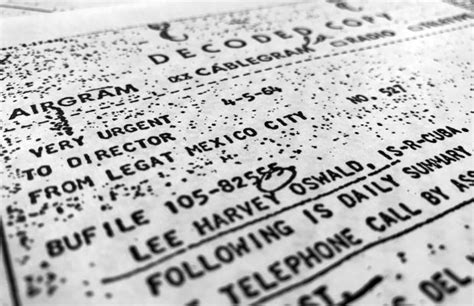 DECODED COPY
AIRGRAM XX CABLEGRAM RADIO
VERY URGENT 4-5-64 NO. 527
TO DIRECTOR
FROM LEGAT MEXICO CITY
BUFILE 105-82555
LEE HARVEY OSWALD, IS-R-CUBA.
FOLLOWING IS DAILY SUMMARY
TELEPHONE CALL BY
DEL